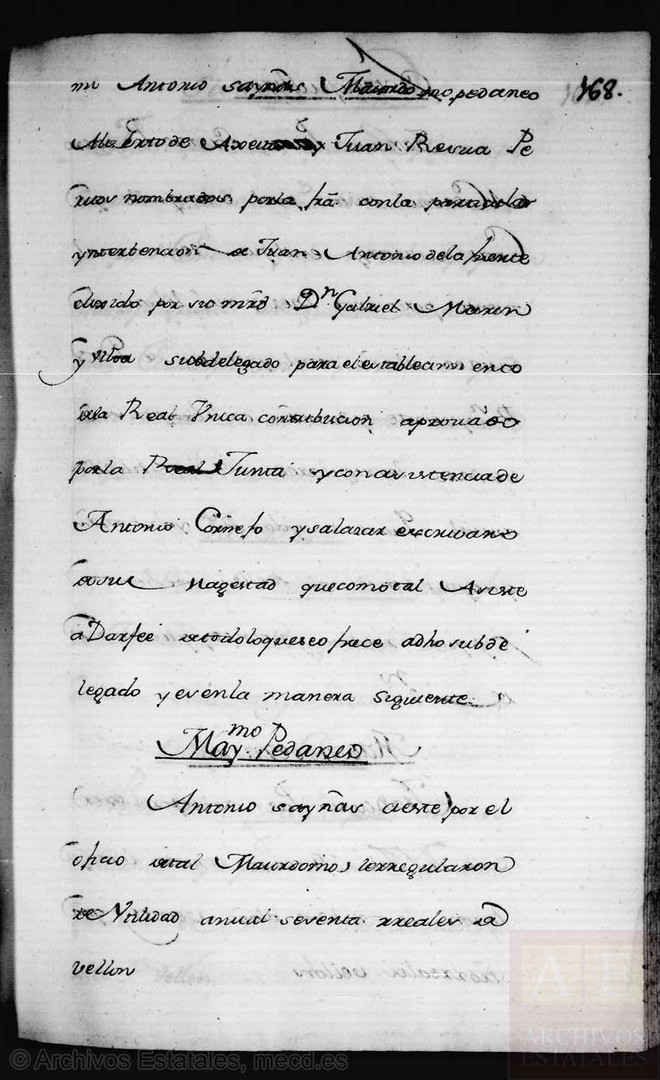 mi Antonio Sayñas Maiordomo pedaneo 168.
Alberto de y Juan Resua Pe
ritos nombrados por la Jrã con la particular
ynterbencion de Juan Antonio de la fuente
elexido por sio mrd Dn Gabriel Marin
y subdelegado para el establecimiento
dela Real Vnica contribucion aprouado
por la Real Junta y con asistencia de
Antonio Cornejo y Salazar escriuano
de su Magestad que como tal Asiste
a Darfee de todo lo que se o frece a dho subde
legado y es en la manera siguiente
Maymo Pedaneo
Antonio sayñas a este por el
oficio de tal Maiordomo le rregularon
de Vtilidad anual sesenta rreales de
vellon
© Archivos Estatales, mecd.es
ARCHIVOS
ESTATALES